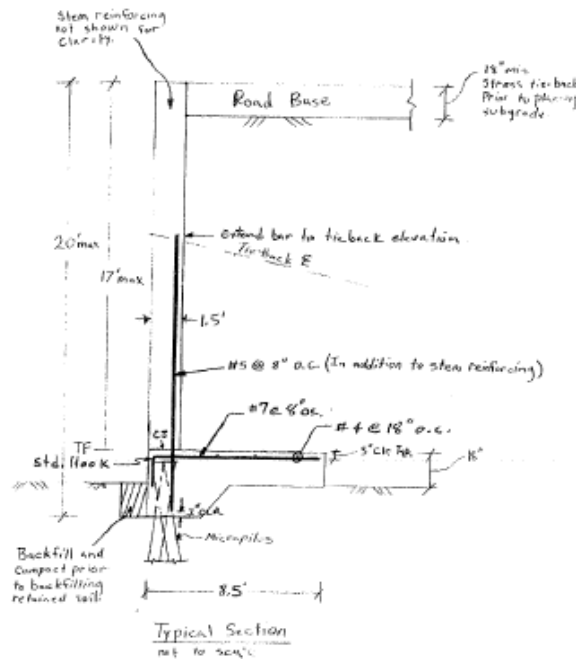 Stem reinforcing
not shown for
Clarity.
Road Base
18" min
Stress tie-back
Prior to
subgrade
extend bar to tieback elevation
Tie-Back ℄
20' max
17' max
1.5'
#5 @ 8" o.c. (In addition to stem reinforcing)
#7 @ 8" o.c.
#4 @ 18" o.c.
CJ
TF
3" Clr. Typ.
Std. Hook
18"
3" Clr.
Micropiles
Backfill and
Compact prior
to backfilling
retained soil
8.5'
Typical Section
not to scale